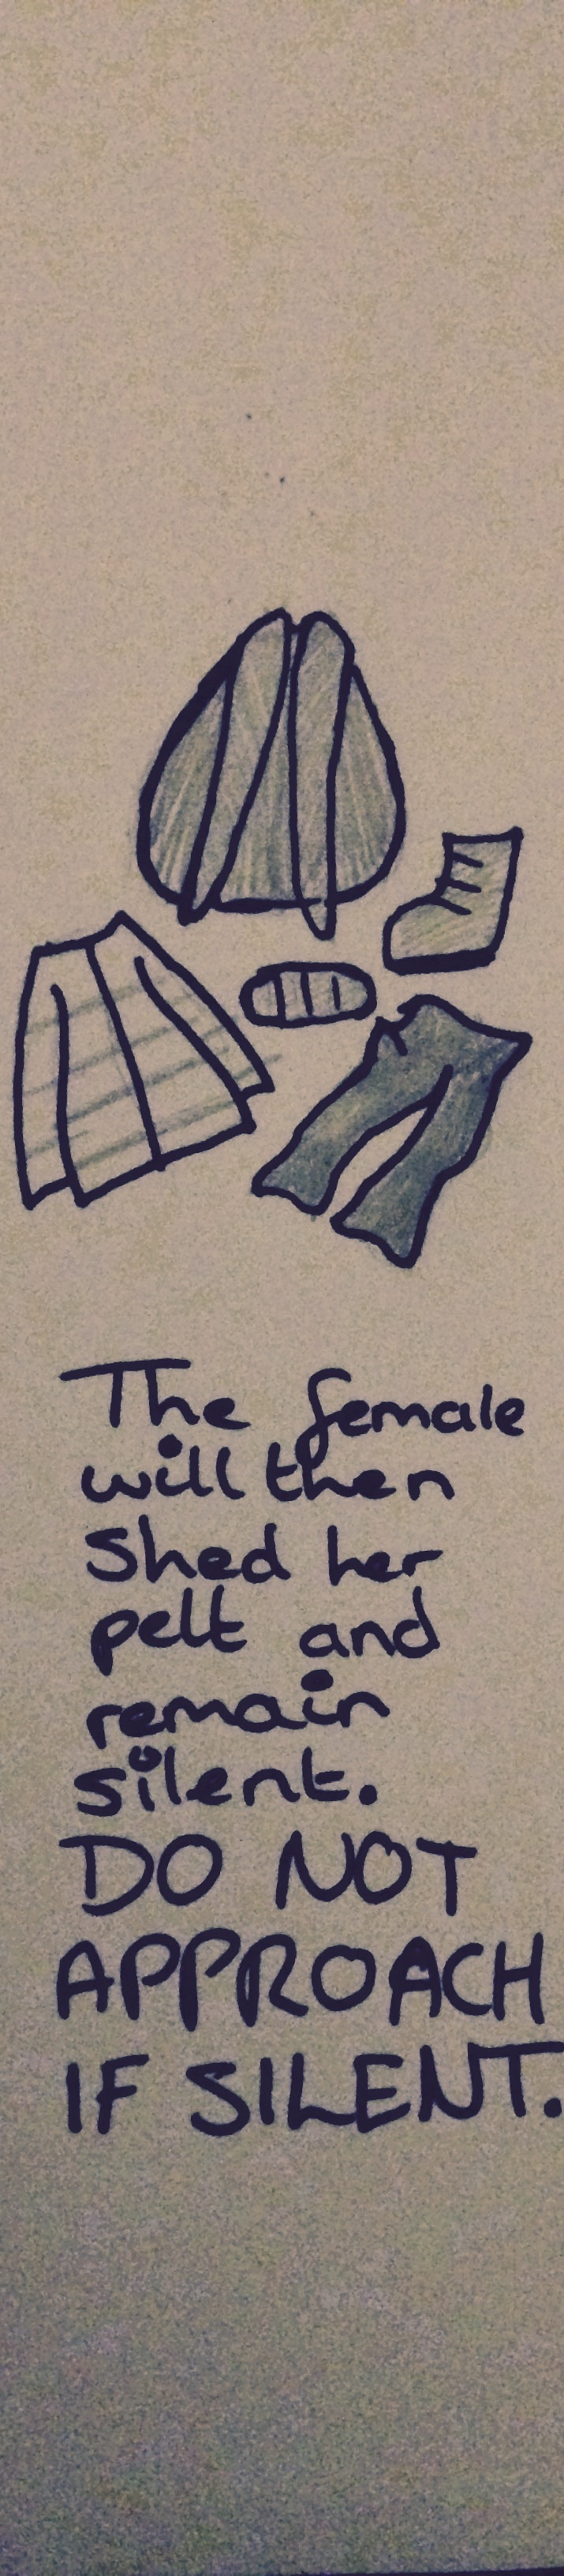 The female
will then
shed her
pelt and
remain
silent.
DO NOT
APPROACH
IF SILENT.